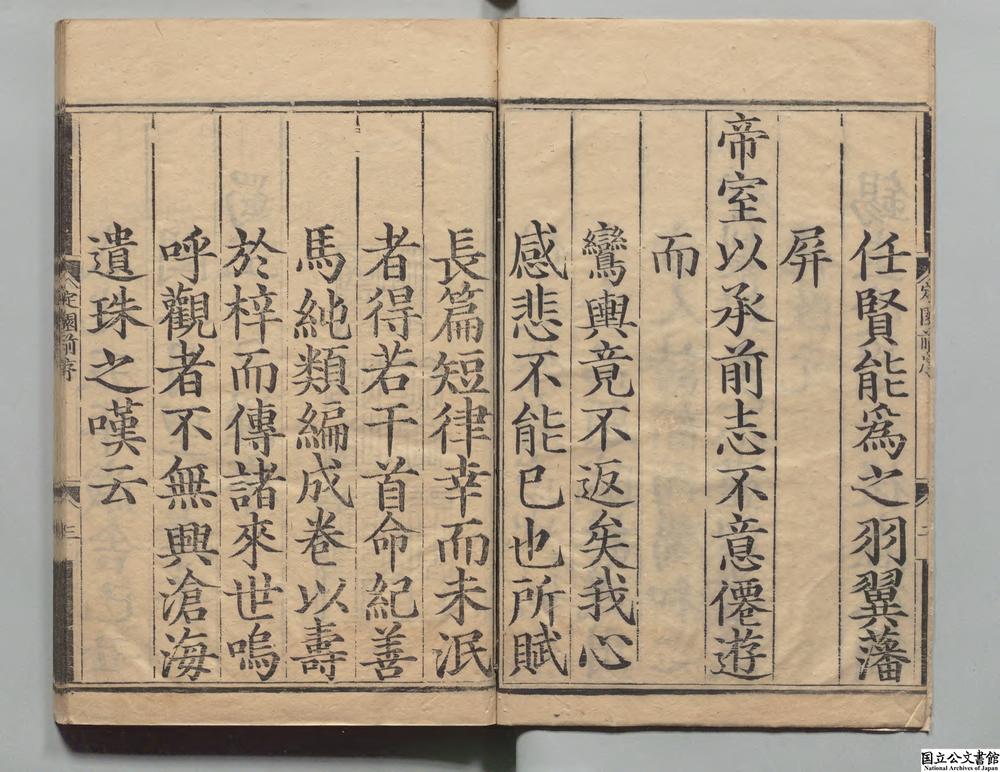 任賢能爲之羽翼藩
屏
帝室以承前志不意僊遊
而
鸞輿竟不返矣我心
感悲不能已也所賦
長篇短律幸而未泯
者得若干首命紀善
馬純類編成卷以壽
於梓而傳諸來世嗚
呼觀者不無興滄海
遺珠之嘆云
定園前序
二
定園前序
三
国立公文書館
National Archives of Japan